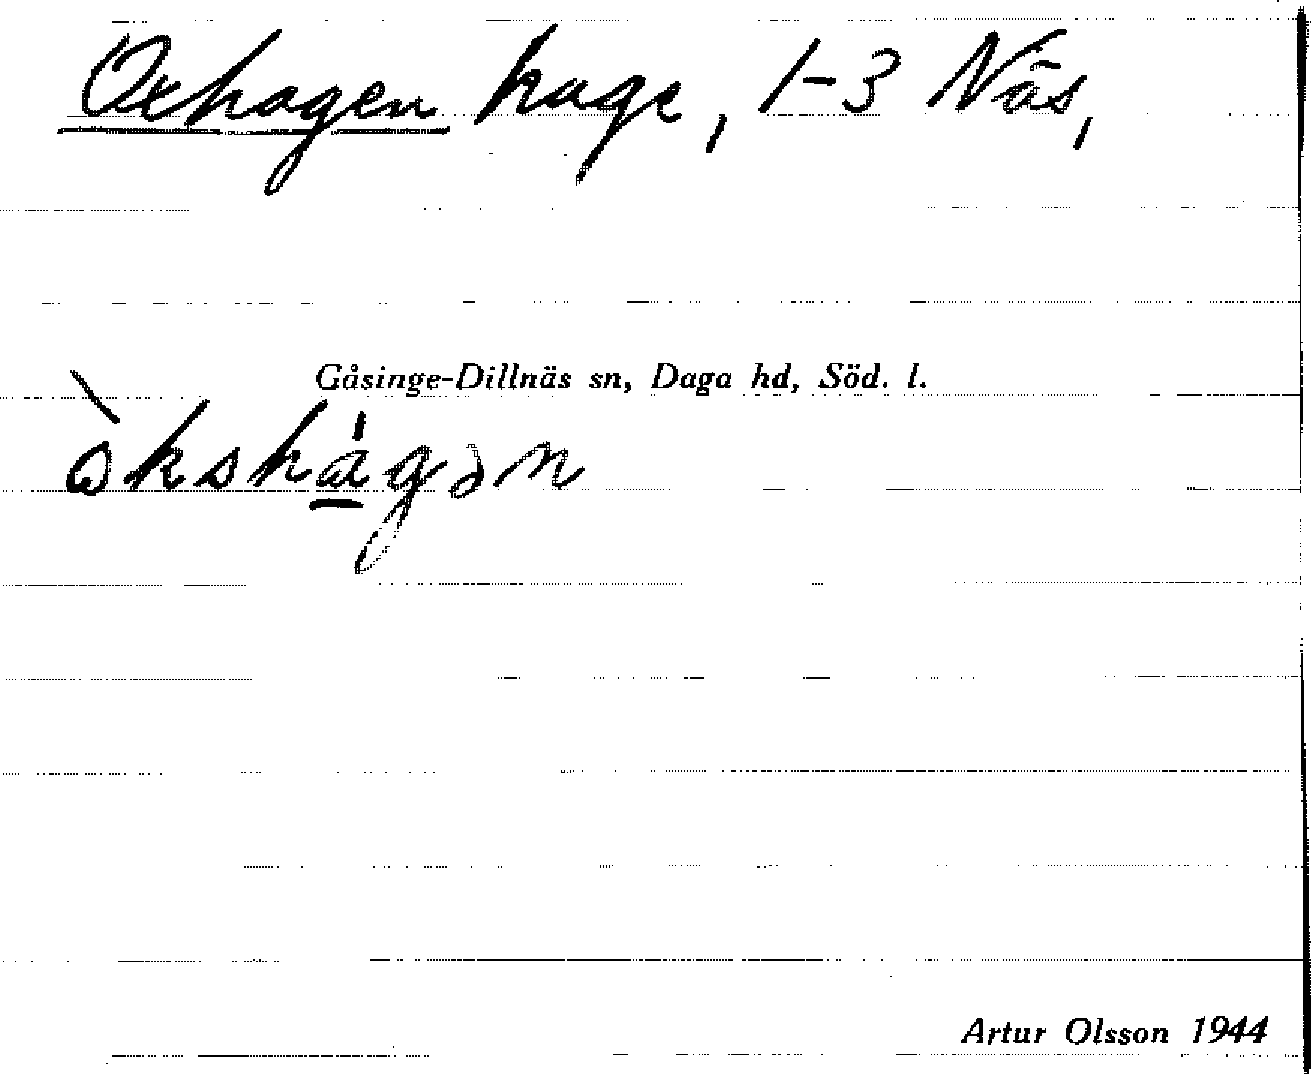 Oxhagen hage, 1-3 Näs,
Gåsinge-Dillnäs sn, Daga hd, Söd. l.
òksha̱̍gən
Artur Olsson 1944